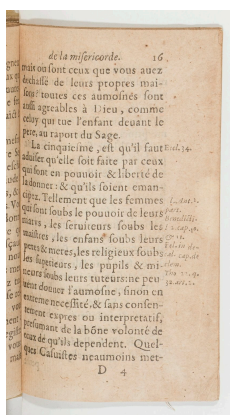 de la misericorde. 16
mais où sont ceux que vous auez
dechassé de leurs propres mai-
sons: toutes ces aumosnes sont
aussi agreables à Dieu, comme
celuy qui tue l'enfant deuãt le
pere, au raport du Sage.
La cinquieime, est qu'il faut Eccl. 34.
aduiser qu'elle soit faite par ceux
qui sont en pouuoir & liberté de
la donner: & qu'ils soient eman-
cipez. Tellement que les femmes
qui sont soubs le pouuoir de leurs
maris, les seruiteurs soubs les
maistres, les enfans soubs leurs
peres & meres, les religieux soubs
les superieurs, les pupils & mi-
neurs soubs leurs tuteurs: ne peu
uent donner l'aumosne, sinon en
extreme necessité, & sans consen-
tement expres ou interpretatif,
presumant de la bõne volonté de
ceux de qu'ils dependent. Quel-
ques Casuistes neaumoins met-
D 4